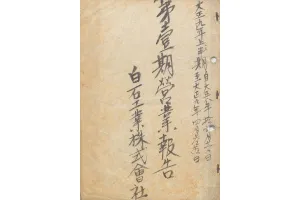 大正九年上半期
自大正八年
至大正九年四月
第壹期營業報告
白石工業株式會社